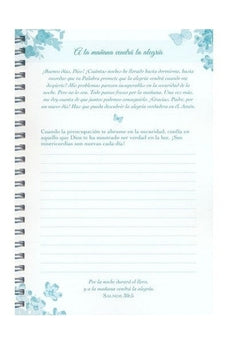 A la mañana vendrá la alegría
¡Buenos días, Dios! ¡Cuántas noches he llorado hasta dormirme, hasta
recordar que tu Palabra promete que la alegría vendrá cuando me
despierte! Mis problemas parecen insuperables en la oscuridad de la
noche. Pero no lo son. Todo parece fresco por la mañana. Una vez más,
me doy cuenta de que juntos podemos conseguirlo. ¡Gracias, Padre, por
un nuevo día! Haz que pueda descubrir la alegría verdadera en él. Amén.
Cuando la preocupación te abrume en la oscuridad, confía en
aquello que Dios te ha mostrado ser verdad en la luz. ¡Sus
misericordias son nuevas cada día!
Por la noche durará el lloro,
y a la mañana vendrá la alegría.
SALMOS 30:5